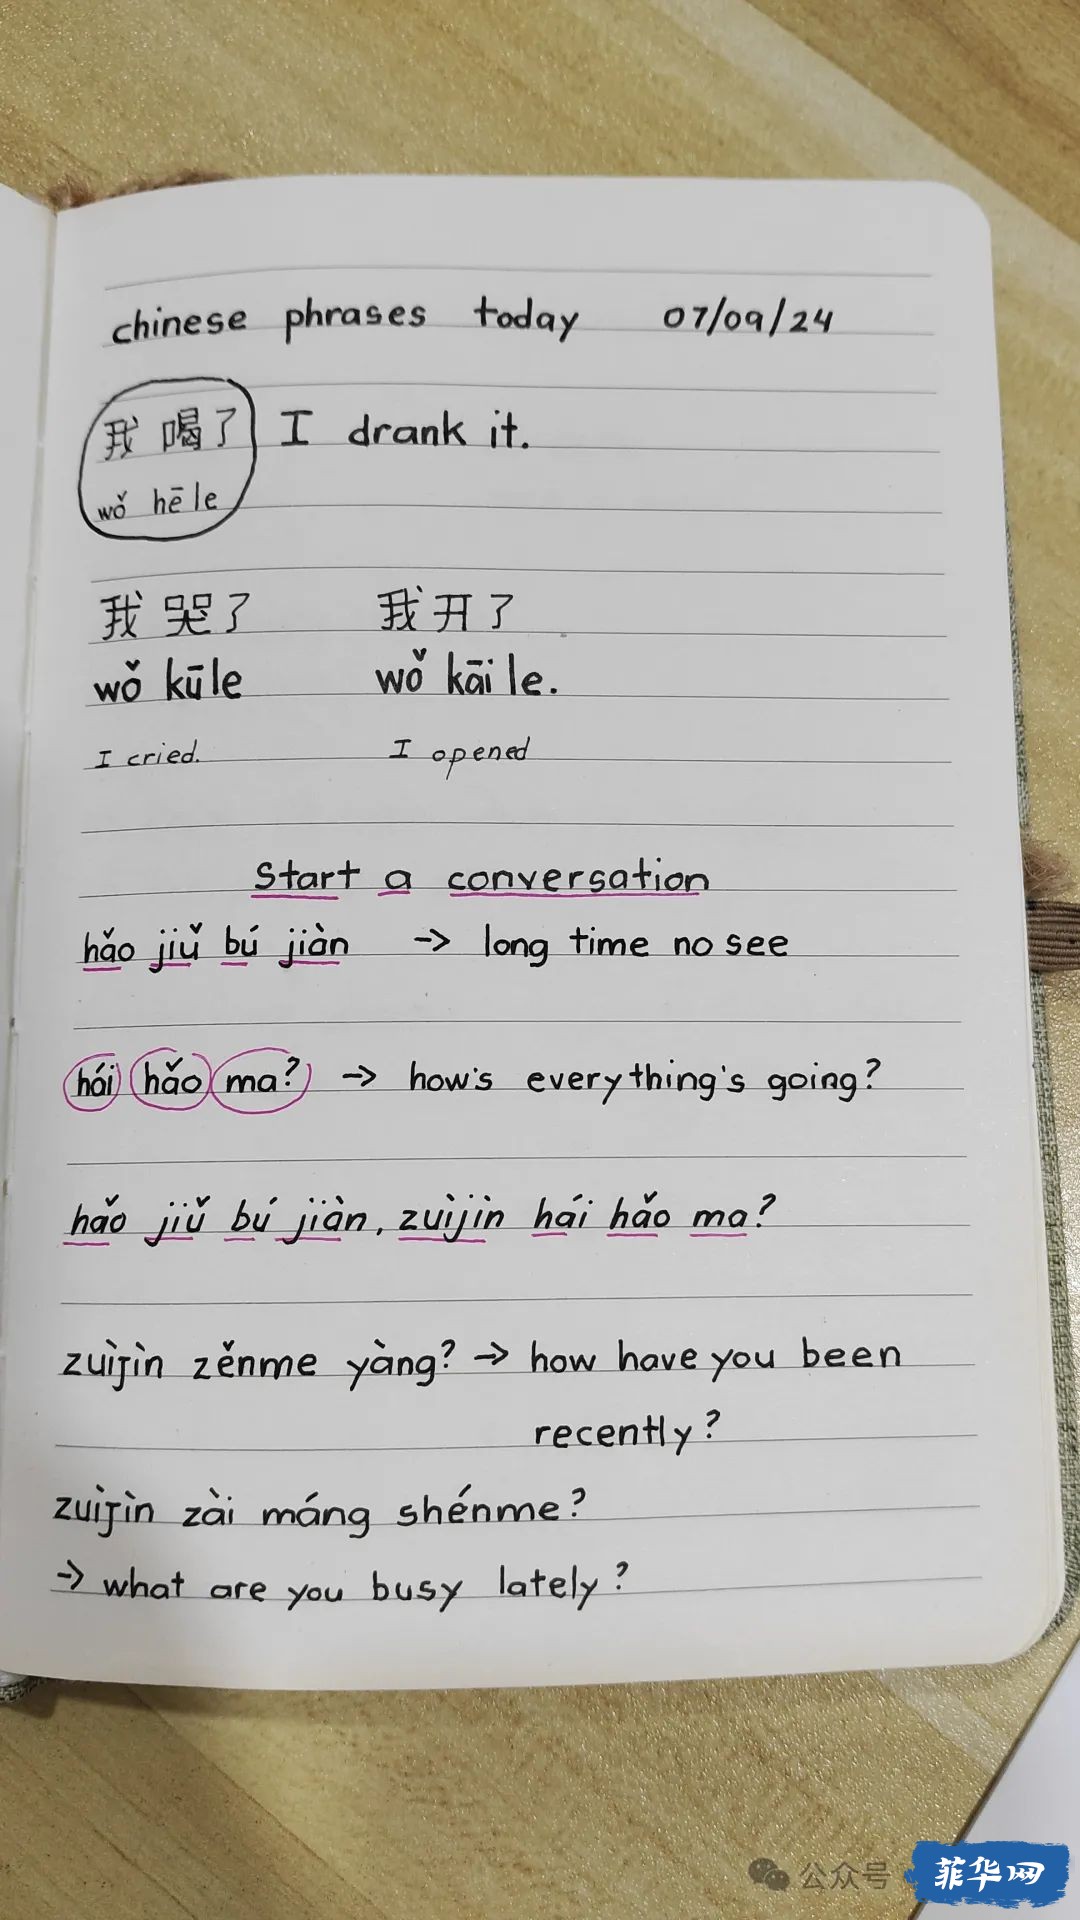 chinese phrases today 07/09/24
我 喝了 I drank it.
wǒ hē le
我 哭了 我 开 了
wǒ kūle wǒ kāi le.
I cried. I opened
Start a conversation
hǎo jiǔ bú jiàn -> long time no see
hái hǎo ma? -> how's everything's going?
hǎo jiǔ bú jiàn, zuìjìn hái hǎo ma?
zuìjìn zěnme yàng? -> how have you been
recently?
zuìjìn zài máng shénme?
-> what are you busy lately?
公众号 菲华网